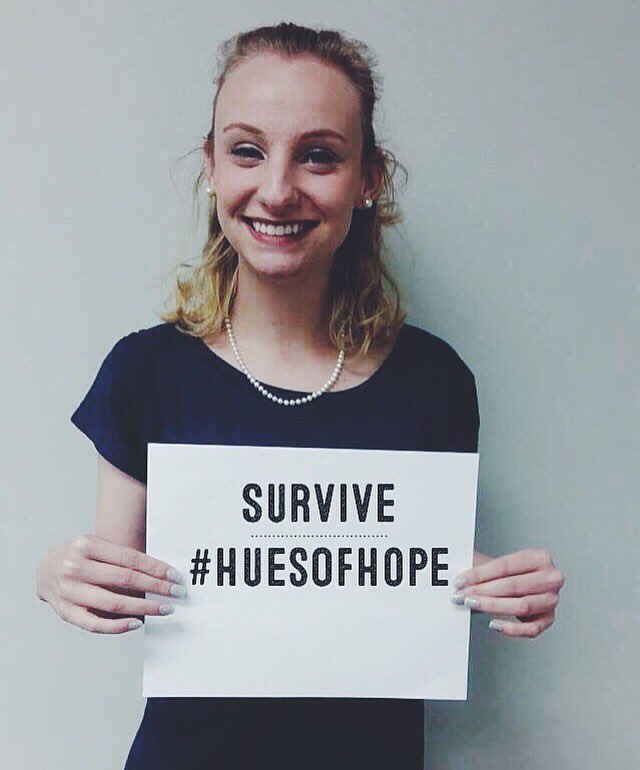 SURVIVE
#HUESOFHOPE